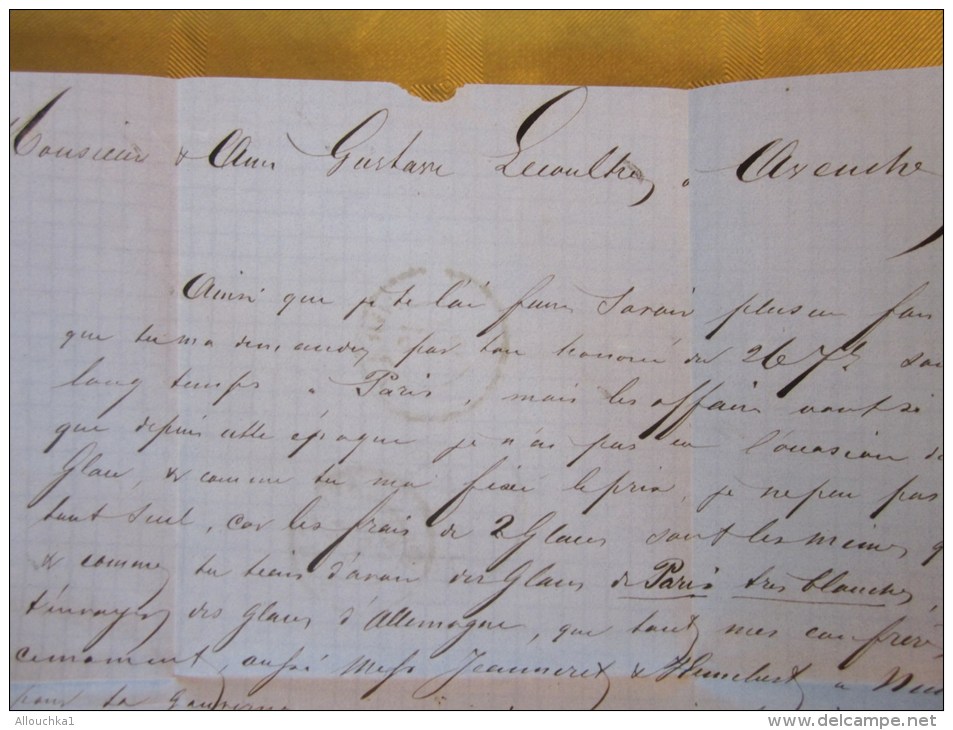 Monsieur & Ami Gustave Lecoultre, à Avenche
Ainsi que je te l'ai faire savoir plusieur fois
que tu ma demandez par ton honoré du 26 7bre
long temps à Paris, mais les affaire vont si
que depuis cette époque je n'ai pas eu l'ocasion de
Glace, & comme tu ma fixé le prix, je ne peu pas
tout seul, car les frais de 2 Glaces sont les mêmes q
& comme tu tiens d'avoir des Glaces de Paris très blanches,
t'envoyer des glaces d'Allemagne, que tout mes confrère
aussi Mess Jeanneret & Humbert à
pour ta gouverne
Allouchka1
www.delcampe.net